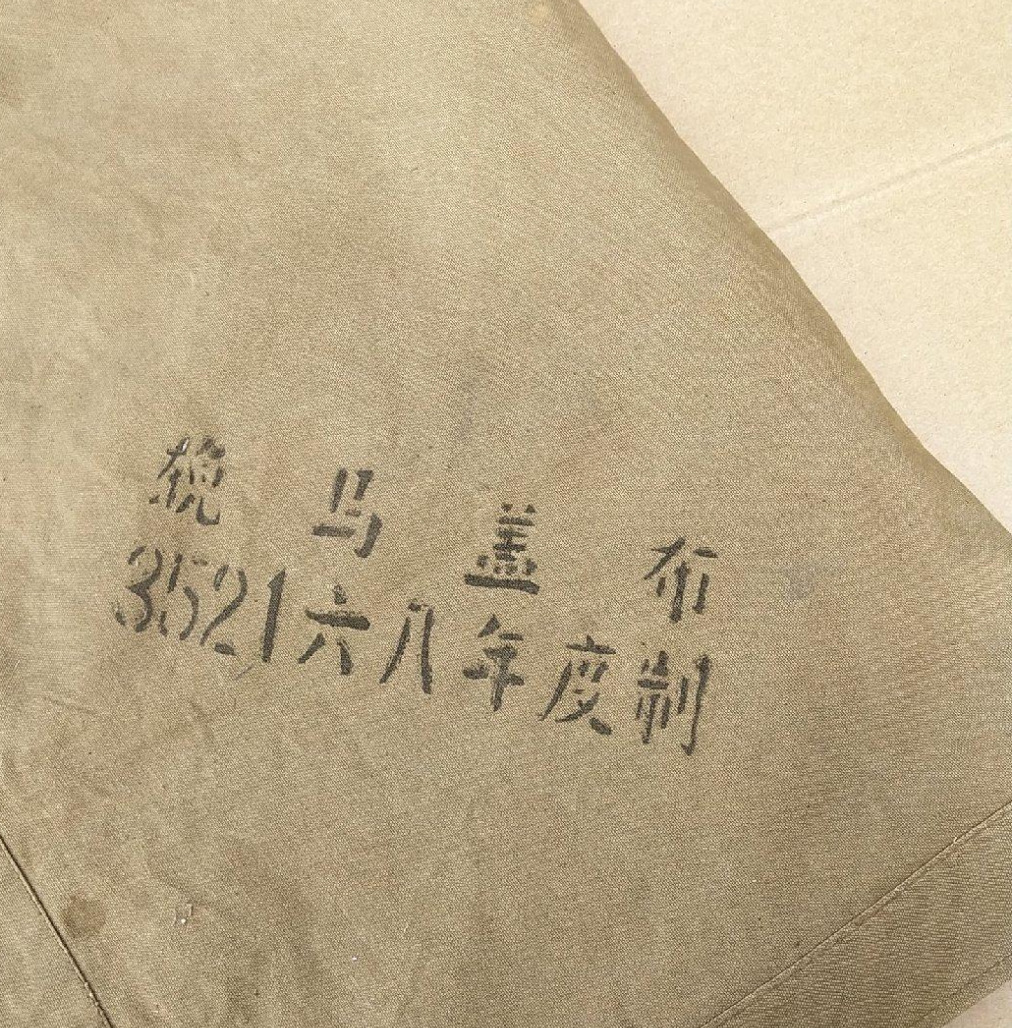 挽马盖布
3521六八年度制